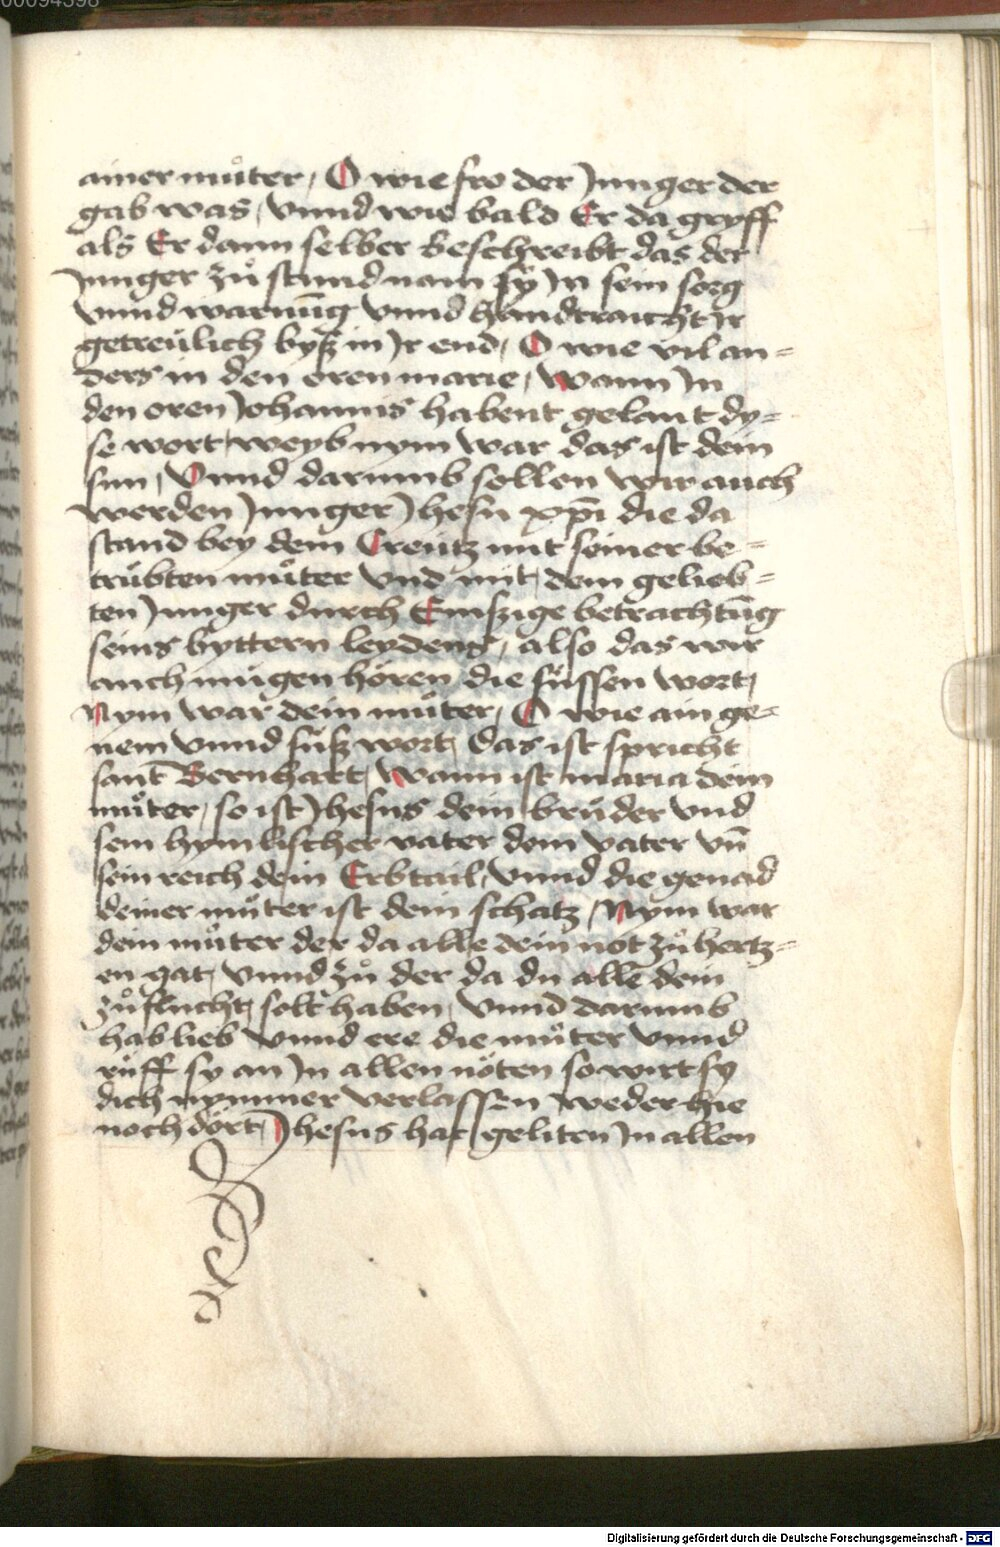 00094398
ainer muͦter, O wie fro der Junger der
gab was, vnnd wie bald Er da gryff
als Er dann selber beschreibt das der
Junger zuͦ stund nam sÿ In sein sorg
vnnd warnūg vnnd handtraicht Ir
getreülich byß in Ir end, O wie vil an=
ders in den oren marie, Wann In
den oren Johannis habent gelaut dy=
se wort, weyb nym war das ist dein
sun, Vnnd darumb sollen wir auch
werden Junger Jhesu xp̄i die da
stand bey dem Creütz mit seiner be=
trübten muͦter vnd mit dem gelieb=
ten Junger durch Emszige betrachtūg
seins byttern leydens, also das wir
auch mügen hören die süssen wort,
Nym war dein muͦter, O wie ain ge=
nem vnnd süß wort, das ist spricht
sant Bernhart, Wann ist maria dein
muͦter, so ist Jhesus dein bruͦder vnd
sein hymlischer vater dein vater vn̄
sein reich dein Erbtail, vnnd die genad
deiner muͦter ist dein schatz, Nym war
dein muͦter der da alle dein not zuͦ hertz=
en gat, vnnd zuͦ der da du alle dein
zuͦflucht solt haben, Vnnd darumb
hab lieb vnnd ere die muͦter vnnd
ruͦff sy an In allen nöten so wirt sy
dich nymmer verlassen weder hie
noch dört, Jhesus hat geliten In allen
Digitalisierung gefördert durch die Deutsche Forschungsgemeinschaft - DFG